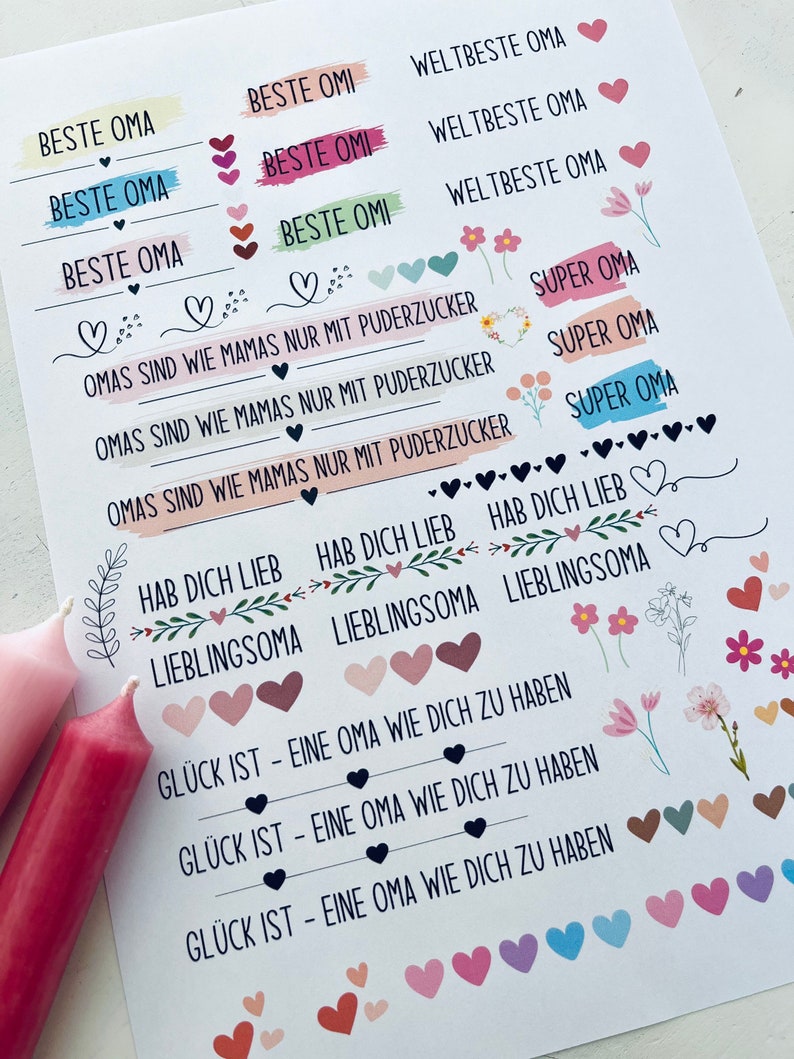 BESTE OMA
BESTE OMI
WELTBESTE OMA
BESTE OMA
BESTE OMI
WELTBESTE OMA
BESTE OMA
BESTE OMI
WELTBESTE OMA
SUPER OMA
SUPER OMA
SUPER OMA
OMAS SIND WIE MAMAS NUR MIT PUDERZUCKER
OMAS SIND WIE MAMAS NUR MIT PUDERZUCKER
OMAS SIND WIE MAMAS NUR MIT PUDERZUCKER
HAB DICH LIEB
HAB DICH LIEB
HAB DICH LIEB
LIEBLINGSOMA
LIEBLINGSOMA
LIEBLINGSOMA
GLÜCK IST - EINE OMA WIE DICH ZU HABEN
GLÜCK IST - EINE OMA WIE DICH ZU HABEN
GLÜCK IST - EINE OMA WIE DICH ZU HABEN